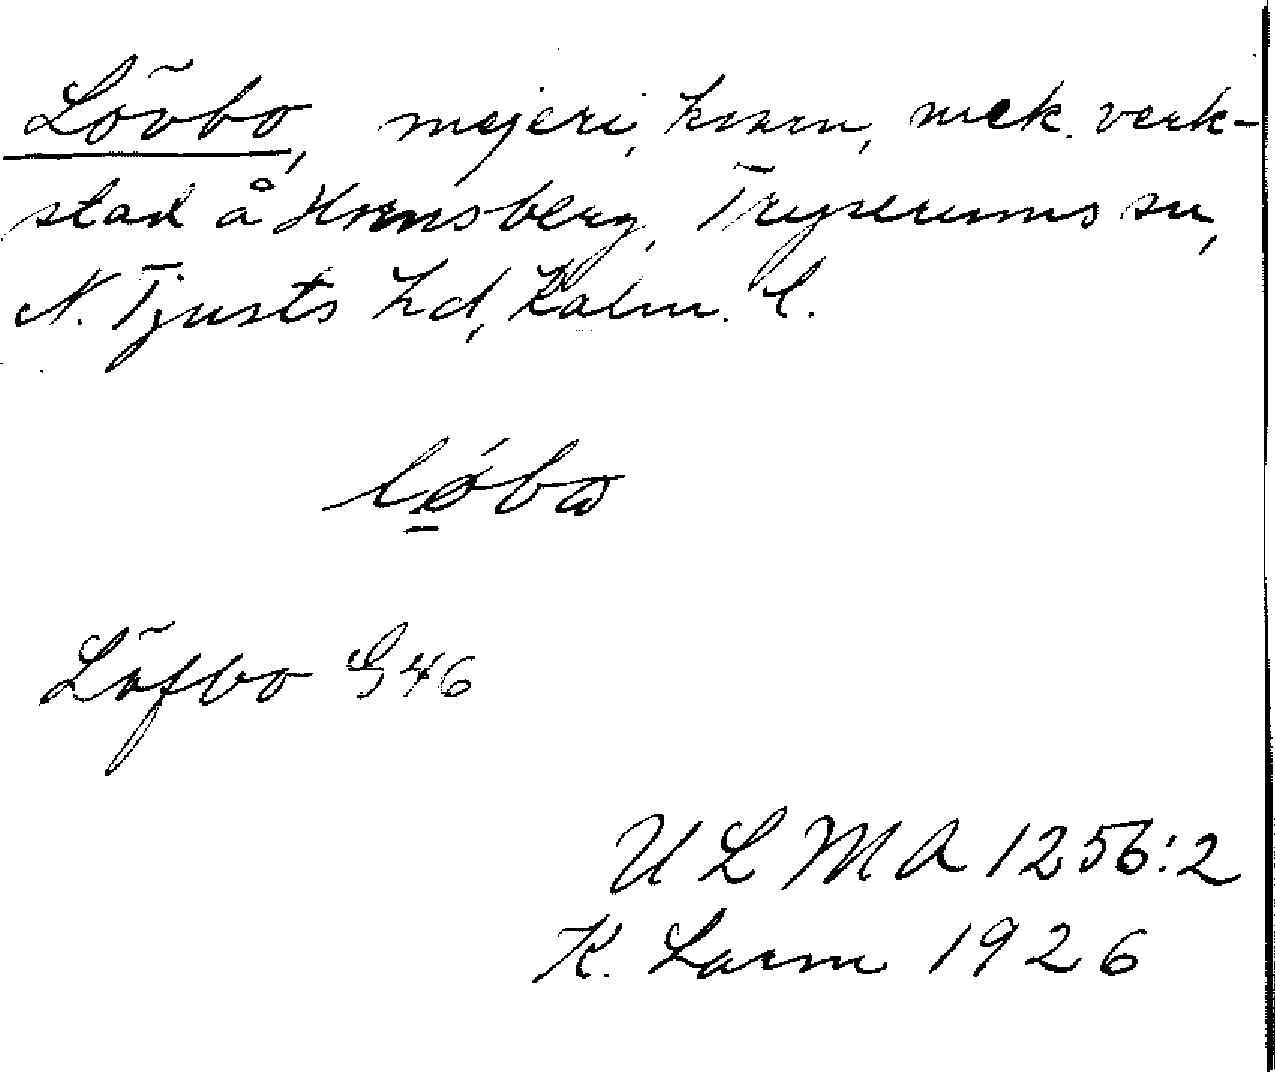 Lövbo, mejeri, kvarn, mek. verk-
stad å Hornsberg, Tryserums sn,
N. Tjusts hd, Kalm. l.
Löfbo G 46
ULMA 1256:2
K. Larm 1926